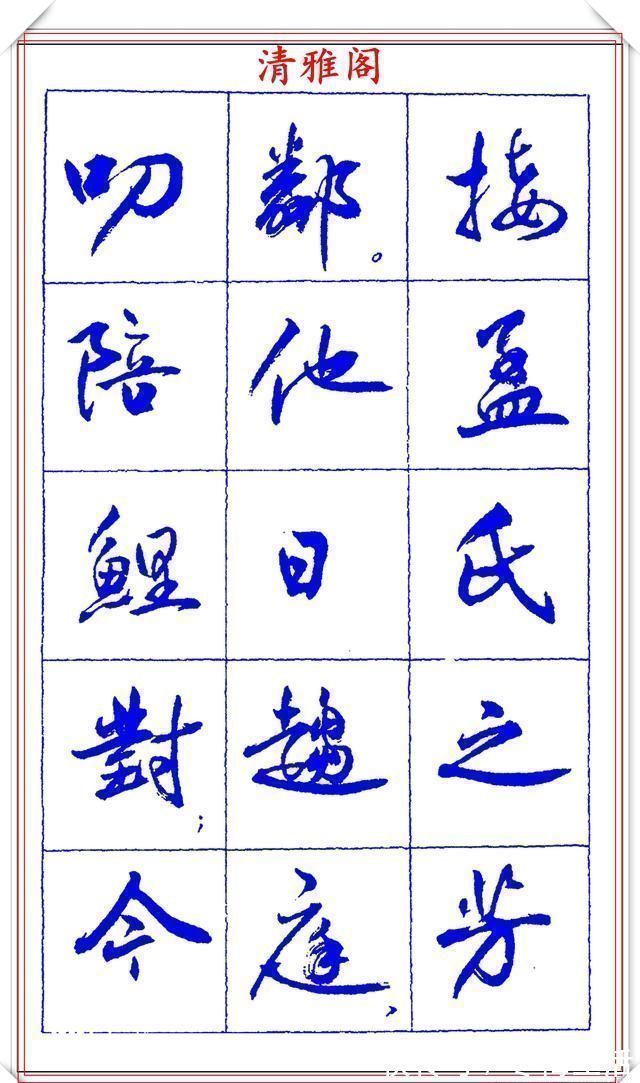 清雅阁
接孟氏之芳
鄰。他日趨庭,
叨陪鯉對;今